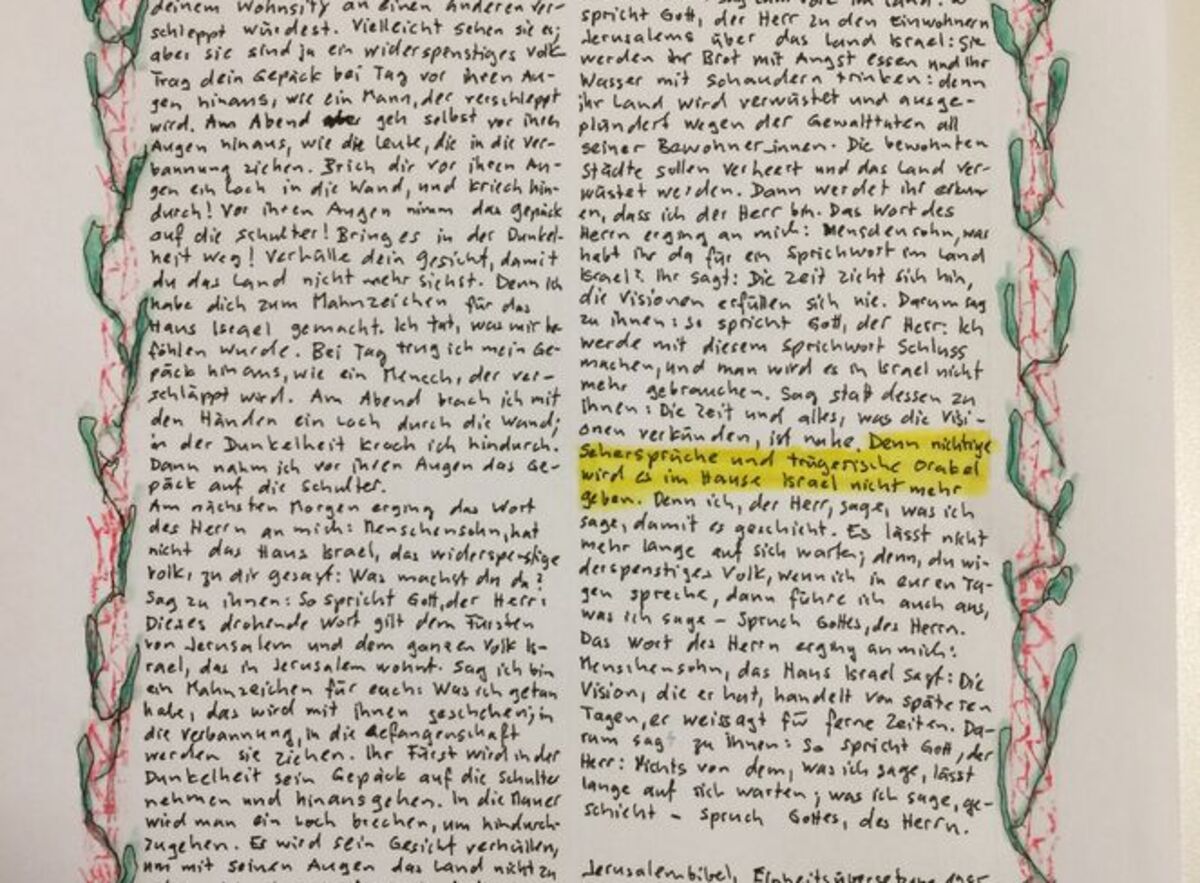 deinem Wohnsitz an einen anderen ver-
schleppt würdest. Vielleicht sehen sie es;
aber sie sind ja ein widerspenstiges Volk
Trag dein Gepäck bei Tag vor ihren Au-
gen hinaus, wie ein Mann, der verschleppt
wird. Am Abend aber geh selbst vor ihren
Augen hinaus, wie die Leute, die in die Ver-
bannung ziehen. Brich dir vor ihren Au-
gen ein Loch in die Wand, und kriech hin-
durch! Vor ihren Augen nimm das Gepäck
auf die Schulter! Bring es in der Dunkel-
heit weg! Verhülle dein Gesicht, damit
du das Land nicht mehr siehst. Denn ich
habe dich zum Mahnzeichen für das
Haus Israel gemacht. Ich tat, was mir be
fohlen wurde. Bei Tag trug ich mein Ge-
päck hinaus, wie ein Mensch, der ver-
schläppt wird. Am Abend brach ich mit
den Händen ein Loch durch die Wand;
in der Dunkelheit kroch ich hindurch.
Dann nahm ich vor ihren Augen das Ge-
päck auf die Schulter.
Am nächsten Morgen erging das Wort
des Herrn an mich: Menschensohn, hat
nicht das Haus Israel, das widerspenstige
Volk, zu dir gesagt: Was machst du da?
Sag zu ihnen: So spricht Gott, der Herr:
Dieses drohende Wort gilt dem Fürsten
von Jerusalem und dem ganzen Volk Is-
rael, das in Jerusalem wohnt. Sag ich bin
ein Mahnzeichen für euch: Was ich getan
habe, das wird mit ihnen geschehen; in
die Verbannung, in die Gefangenschaft
werden sie ziehen. Ihr Fürst wird in der
Dunkelheit sein Gepäck auf die Schulter
nehmen und hinausgehen. In die Mauer
wird man ein Loch brechen, um hindurch-
zugehen. Er wird sein Gesicht verhüllen,
um mit seinen Augen das Land nicht zu
spricht Gott, der Herr zu den Einwohnern
Jerusalems über das Land Israel: Sie
werden ihr Brot mit Angst essen und ihr
Wasser mit Schaudern trinken: denn
ihr Land wird verwüstet und ausge-
plündert wegen der Gewalttaten all
seiner Bewohner_innen. Die bewohnten
Städte sollen verheert und das Land ver-
wüstet werden. Dann werdet ihr erkenn
en, dass ich der Herr bin. Das Wort des
Herrn erging an mich: Menschensohn, was
habt ihr da für ein Sprichwort im Land
Israel? Ihr sagt: Die Zeit zieht sich hin,
die Visionen erfüllen sich nie. Darum sag
zu ihnen: So spricht Gott, der Herr: Ich
werde mit diesem Sprichwort Schluss
machen, und man wird es in Israel nicht
mehr gebrauchen. Sag statt dessen zu
ihnen: Die Zeit und alles, was die Visi-
onen verkünden, ist nahe. Denn nichtige
Sehersprüche und trügerische Orakel
wird es im Hause Israel nicht mehr
geben. Denn ich, der Herr, sage, was ich
sage, damit es geschieht. Es lässt nicht
mehr lange auf sich warten; denn, du wi-
derspenstiges Volk, wenn ich in euren Ta-
gen spreche, dann führe ich auch aus,
was ich sage - Spruch Gottes, des Herrn.
Das Wort des Herrn erging an mich:
Menschensohn, das Haus Israel sagt: Die
Vision, die er hat, handelt von späteren
Tagen, er weissagt für ferne Zeiten. Da-
rum sag zu ihnen: So spricht Gott, der
Herr: Nichts von dem, was ich sage, lässt
lange auf sich warten; was ich sage, ge-
schieht - Spruch Gottes, des Herrn.
Jerusalembibel, Einheitsübersetzung